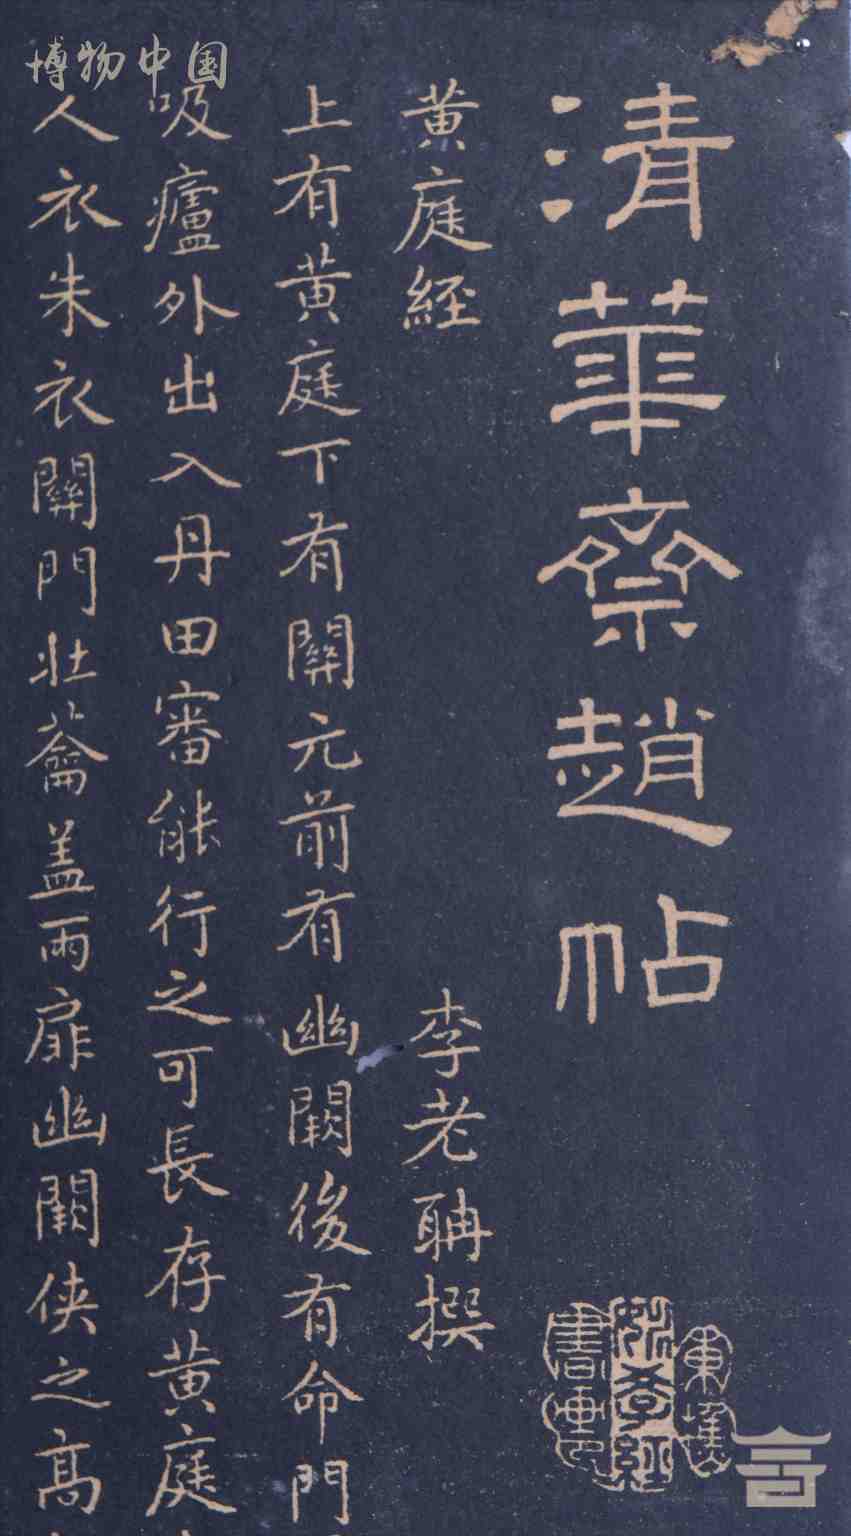 清華齋趙帖
黃庭經
李老聃撰
上有黃庭下有關元前有幽闕後有命門
吸廬外出入丹田審能行之可長存黃庭
人衣朱衣關門壯蘥盖兩扉幽闕俠之高
博物中国